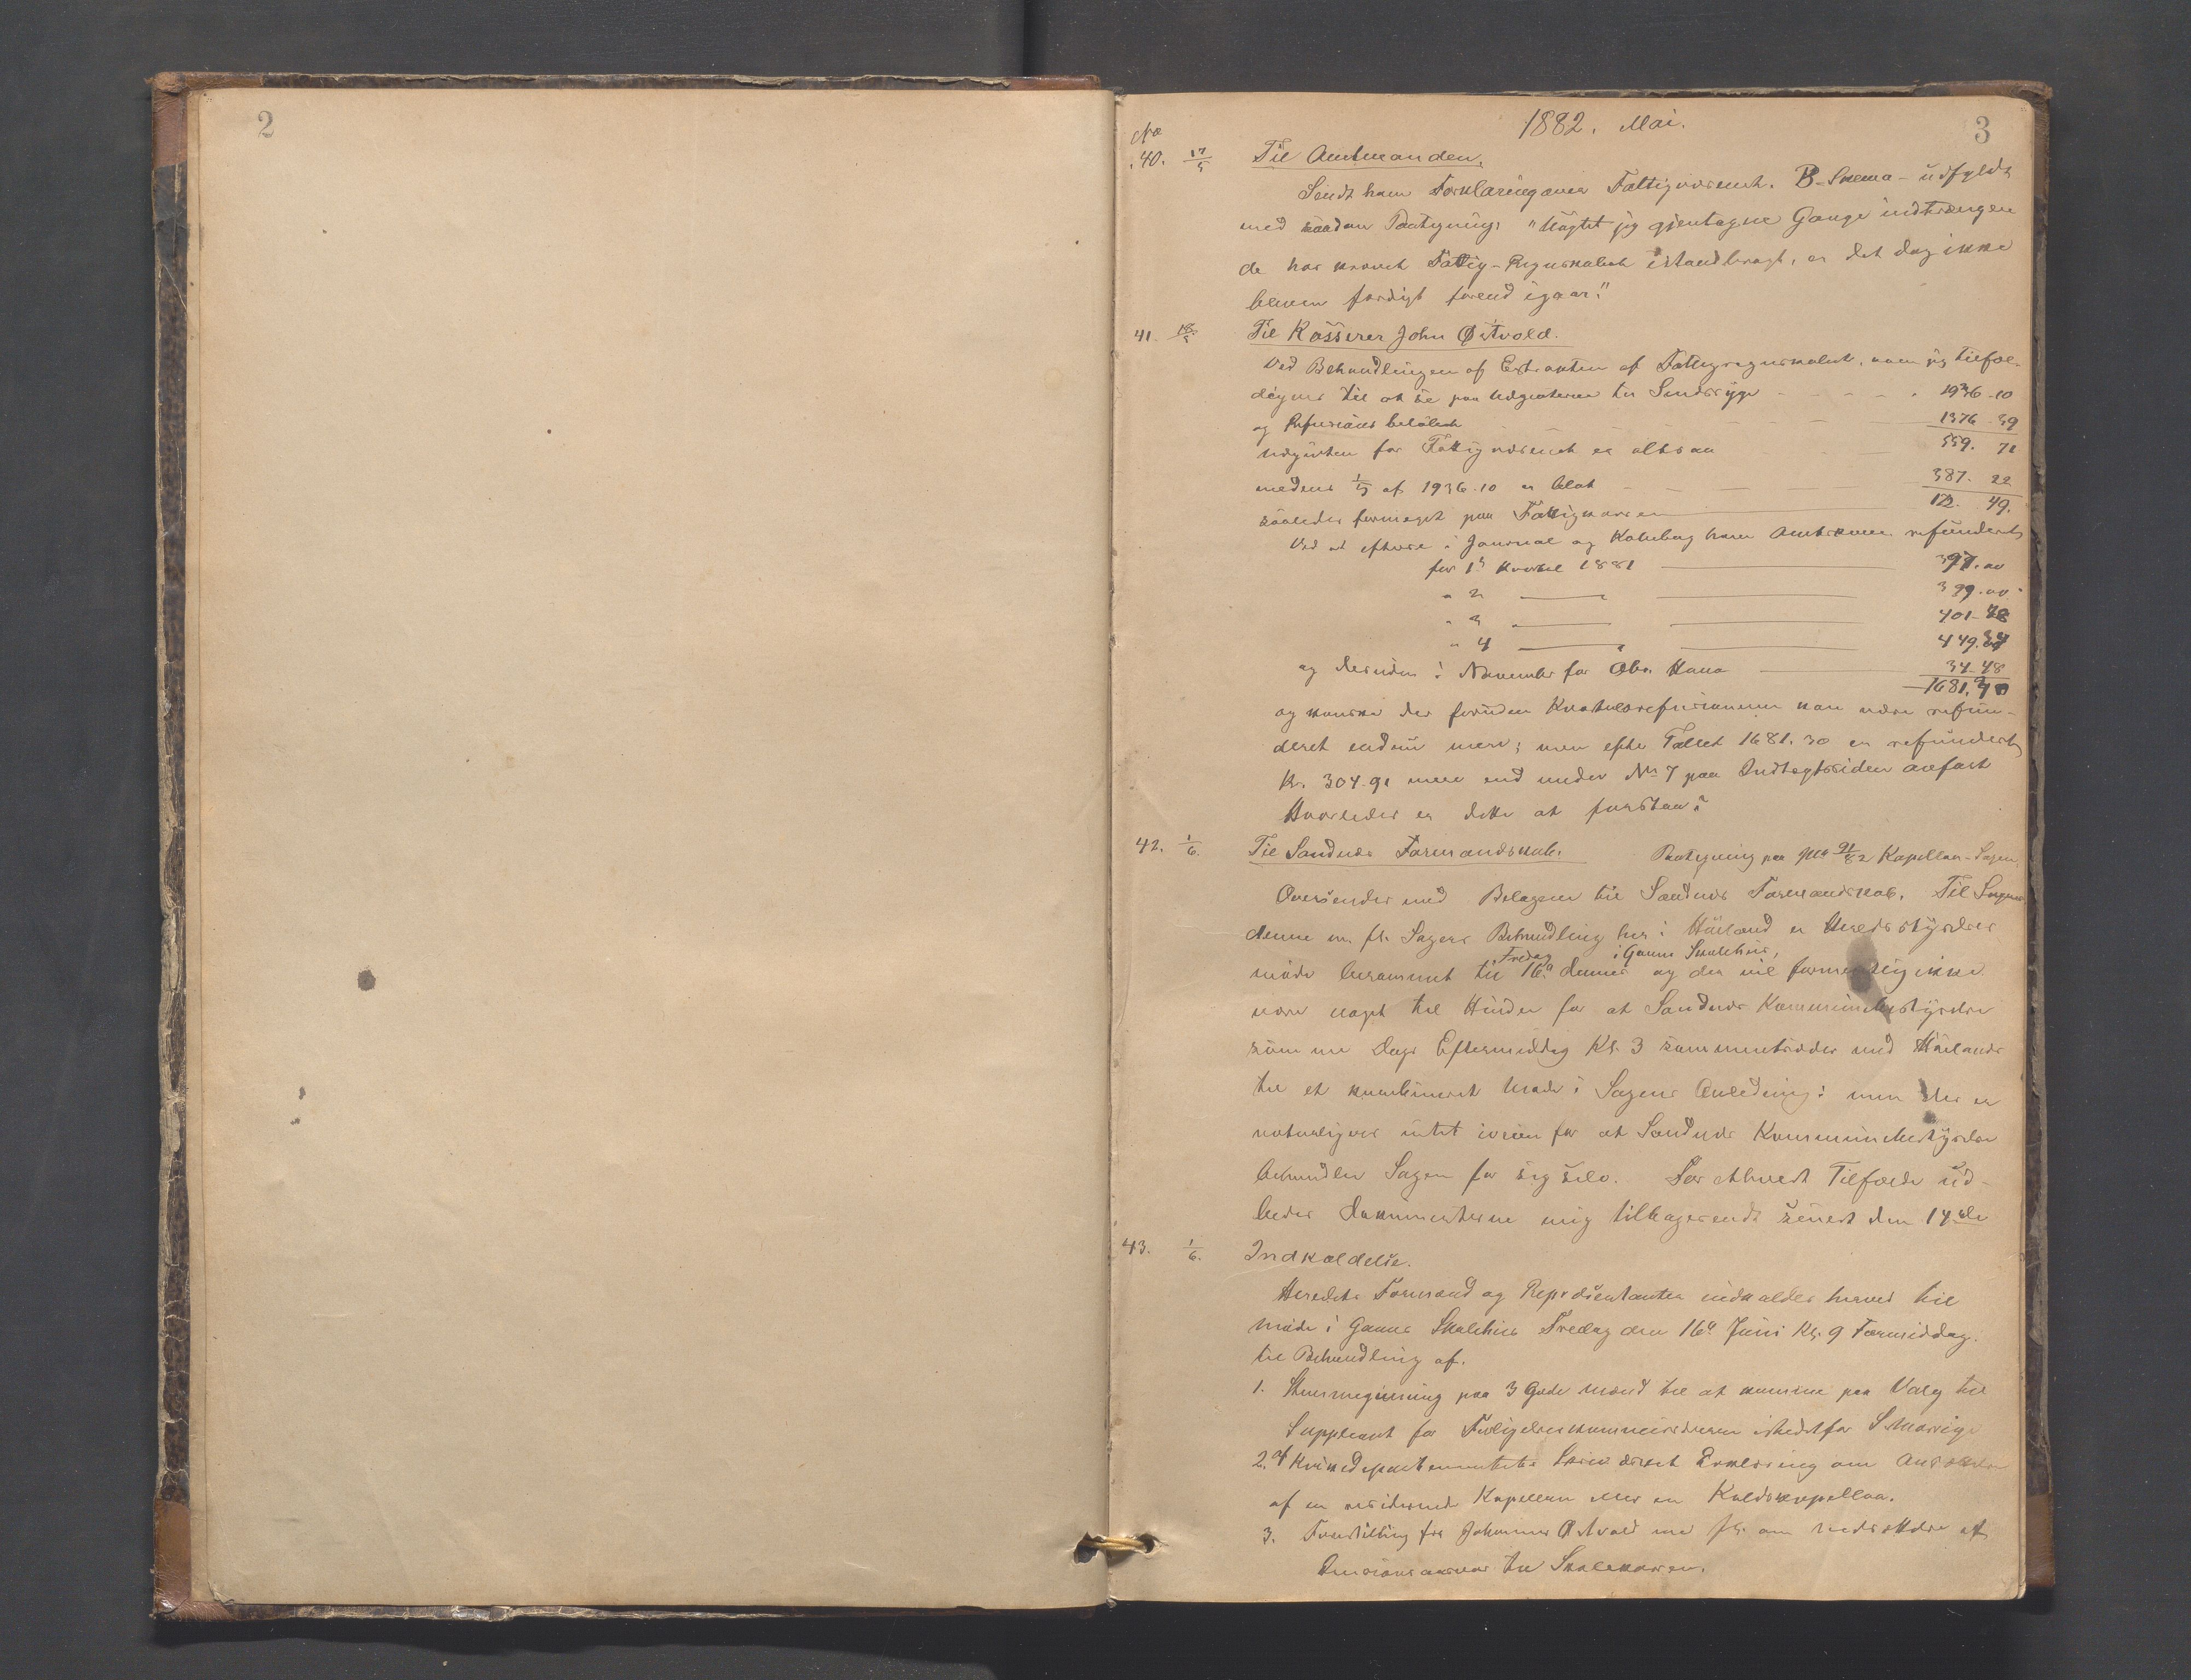 2
3
1882. Mai.
No
40. 17/5 Til Amtmanden.
Sendt ham Forklaring over Fattigvæsenet. B-Skema - udfyldt
med saadan Paategning: "Uagtet jeg gjentagne Gange indtrængen
de har krævet Fattig-Regnskabet istandbragt, er det dog ikke
bleven færdigt førend igaar."
41. 18/5 Til Kasserer John Østvold.
Ved Behandlingen af Extrakten af Fattigregnskabet, kom jeg tilfæl-
digvis til at se paa Udgivterne til Sindssyge 1936-10
og Refusions beløbet 1376-39
Udgivten for Fattigvæsenet er altsaa 559. 71
medens 1/5 af 1936.10 er blot 387. 22
saaledes formeget paa Fattigkassen 172. 49.
Ved at eftersee i Journal og Kopibog har Amtskassen refunderet
for 1ste Kvartal 1881 397.00
" 2 399.00
" 3 401-48
" 4 449.34
og desuden i November for Abr. Hana 34-48
1681.30
og kanske der foruden Kvartalsrefusionerne kan være refun-
deret endnu mere; men efter Tallet 1681.30 er refunderet
Kr. 304.91 mere end under No 7 paa Indtægtssiden anført
Hvorledes er dette at forstaa?
42. 1/6. Til Sandnæs Formandskab. Paategning paa No 91/82 Kapellan-Sagen
Oversendes med Bilagene til Sandnæs Formandskab. Til Sagens
denne m. fl. Sagers Behandling her i Høiland er Heredsstyrelses
Fredag i Ganns Skolehus,
møde berammet til 16de dennes og der vil formentlig ikke
være noget til Hinder for at Sandnæs Kommunebestyrelse
samme Dags Eftermiddag Kl. 3 sammentræder med Høilands
til et kombineret Møde i Sagens Anledning: men der er
naturligvis intet iveien for at Sandnæs Kommunebestyrelse
behandler Sagen for sig selv. I ethvert Tilfælde ud-
bedes Dokumenterne mig tilbagesendt senest den 14de
43. 1/6. Indkaldelse.
Heredets Formænd og Repræsentanter indkaldes herved til
Møde i Ganns Skolehus Fredag den 16de Juni Kl. 9 Formiddag.
til Behandling af.
1. Stemmegivning paa 3 Gode Mænd til at komme paa Valg til
Suppleant for Forligelseskommissæren istedetfor
2. Af Kirkedepartementets Erklæring om Ansættelse
af en residerende Kapellan eller en Kaldskapellan.
3. Forestilling fra Johannes Østvold med fl. om nedsættelse af
til Skolekassen.